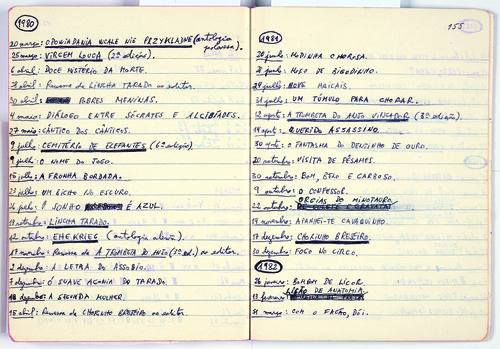 1980
20 março: OPOWIADANIA WCALE NIE PRZYKLADNE (antologia
polonesa).
25 março: VIRGEM LOUCA (2ª edição).
6 abril: DOCE MISTÉRIO DA MORTE.
abril: Remessa de LINCHA TARADO ao editor.
30 abril: POBRES MENINAS.
4 maio: DIÁLOGO ENTRE SÓCRATES E ALCIBÍADES.
27 maio: CÂNTICO DOS CÂNTICOS.
9 julho: CEMITÉRIO DE ELEFANTES (6ª edição)
9 julho: O NOME DO JOGO.
15 julho: A FRONHA BORDADA.
23 julho: UM BICHO NO ESCURO.
26 julho: O SONHO É AZUL.
19 setembro: LINCHA TARADO.
12 outubro: EHEKRIEG (antologia alemã).
17 novembro: Remessa de A TROMPETA DO ANJO (3ª ed.) ao editor.
2 dezembro: A LETRA DO ASSOBIO.
7 dezembro: Ó SUAVE AGONIA DO TARADO.
18 dezembro: A SEGUNDA MULHER.
15 abril: Remessa de CHORINHO BREJEIRO ao editor.
155
1981
20 junho: MODINHA CHOROSA.
junho: MOÇO DE BIGODINHO.
julho: NOVE HAICAIS.
31 julho: UM TÚMULO PARA CHORAR.
12 agosto: A TROMPETA DO ANJO VINGADOR (3ª edição).
19 agosto: QUERIDO ASSASSINO.
30 agosto: O FANTASMA DO DENTINHO DE OURO.
20 setembro: VISITA DE PÊSAMES.
30 setembro: BOM, BELO E CARBOSO.
9 outubro: O CONFESSOR.
ORGIAS DO MINOTAURO
22 outubro: DE COLETE E GRAVATA
19 novembro: APANHEI-TE CAVAQUINHO.
17 dezembro: CHORINHO BREJEIRO.
30 dezembro: FOGO NO CIRCO.
1982
26 janeiro: BOMBOM DE LICOR.
LIÇÃO DE ANATOMIA
13 fevereiro:
31 março: COM O FACÃO, DÓI.